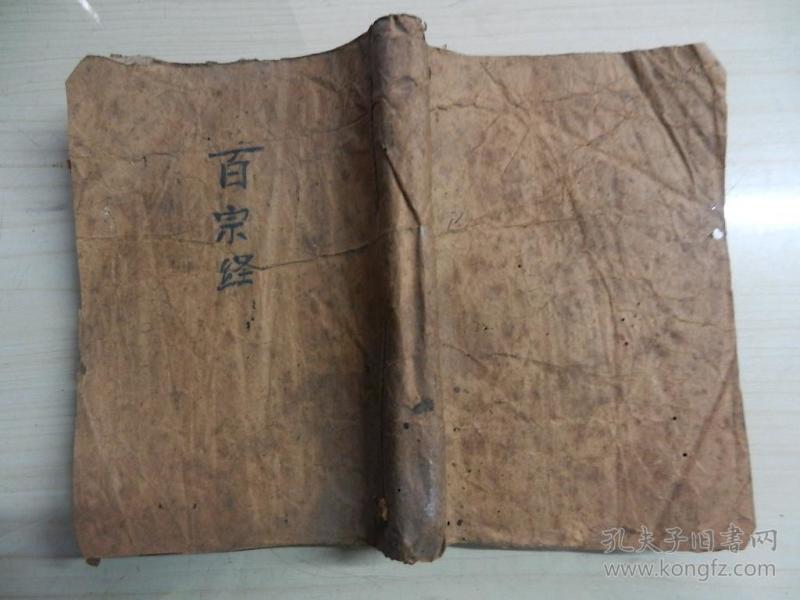 百宗经
孔夫子旧書网
www.kongfz.com